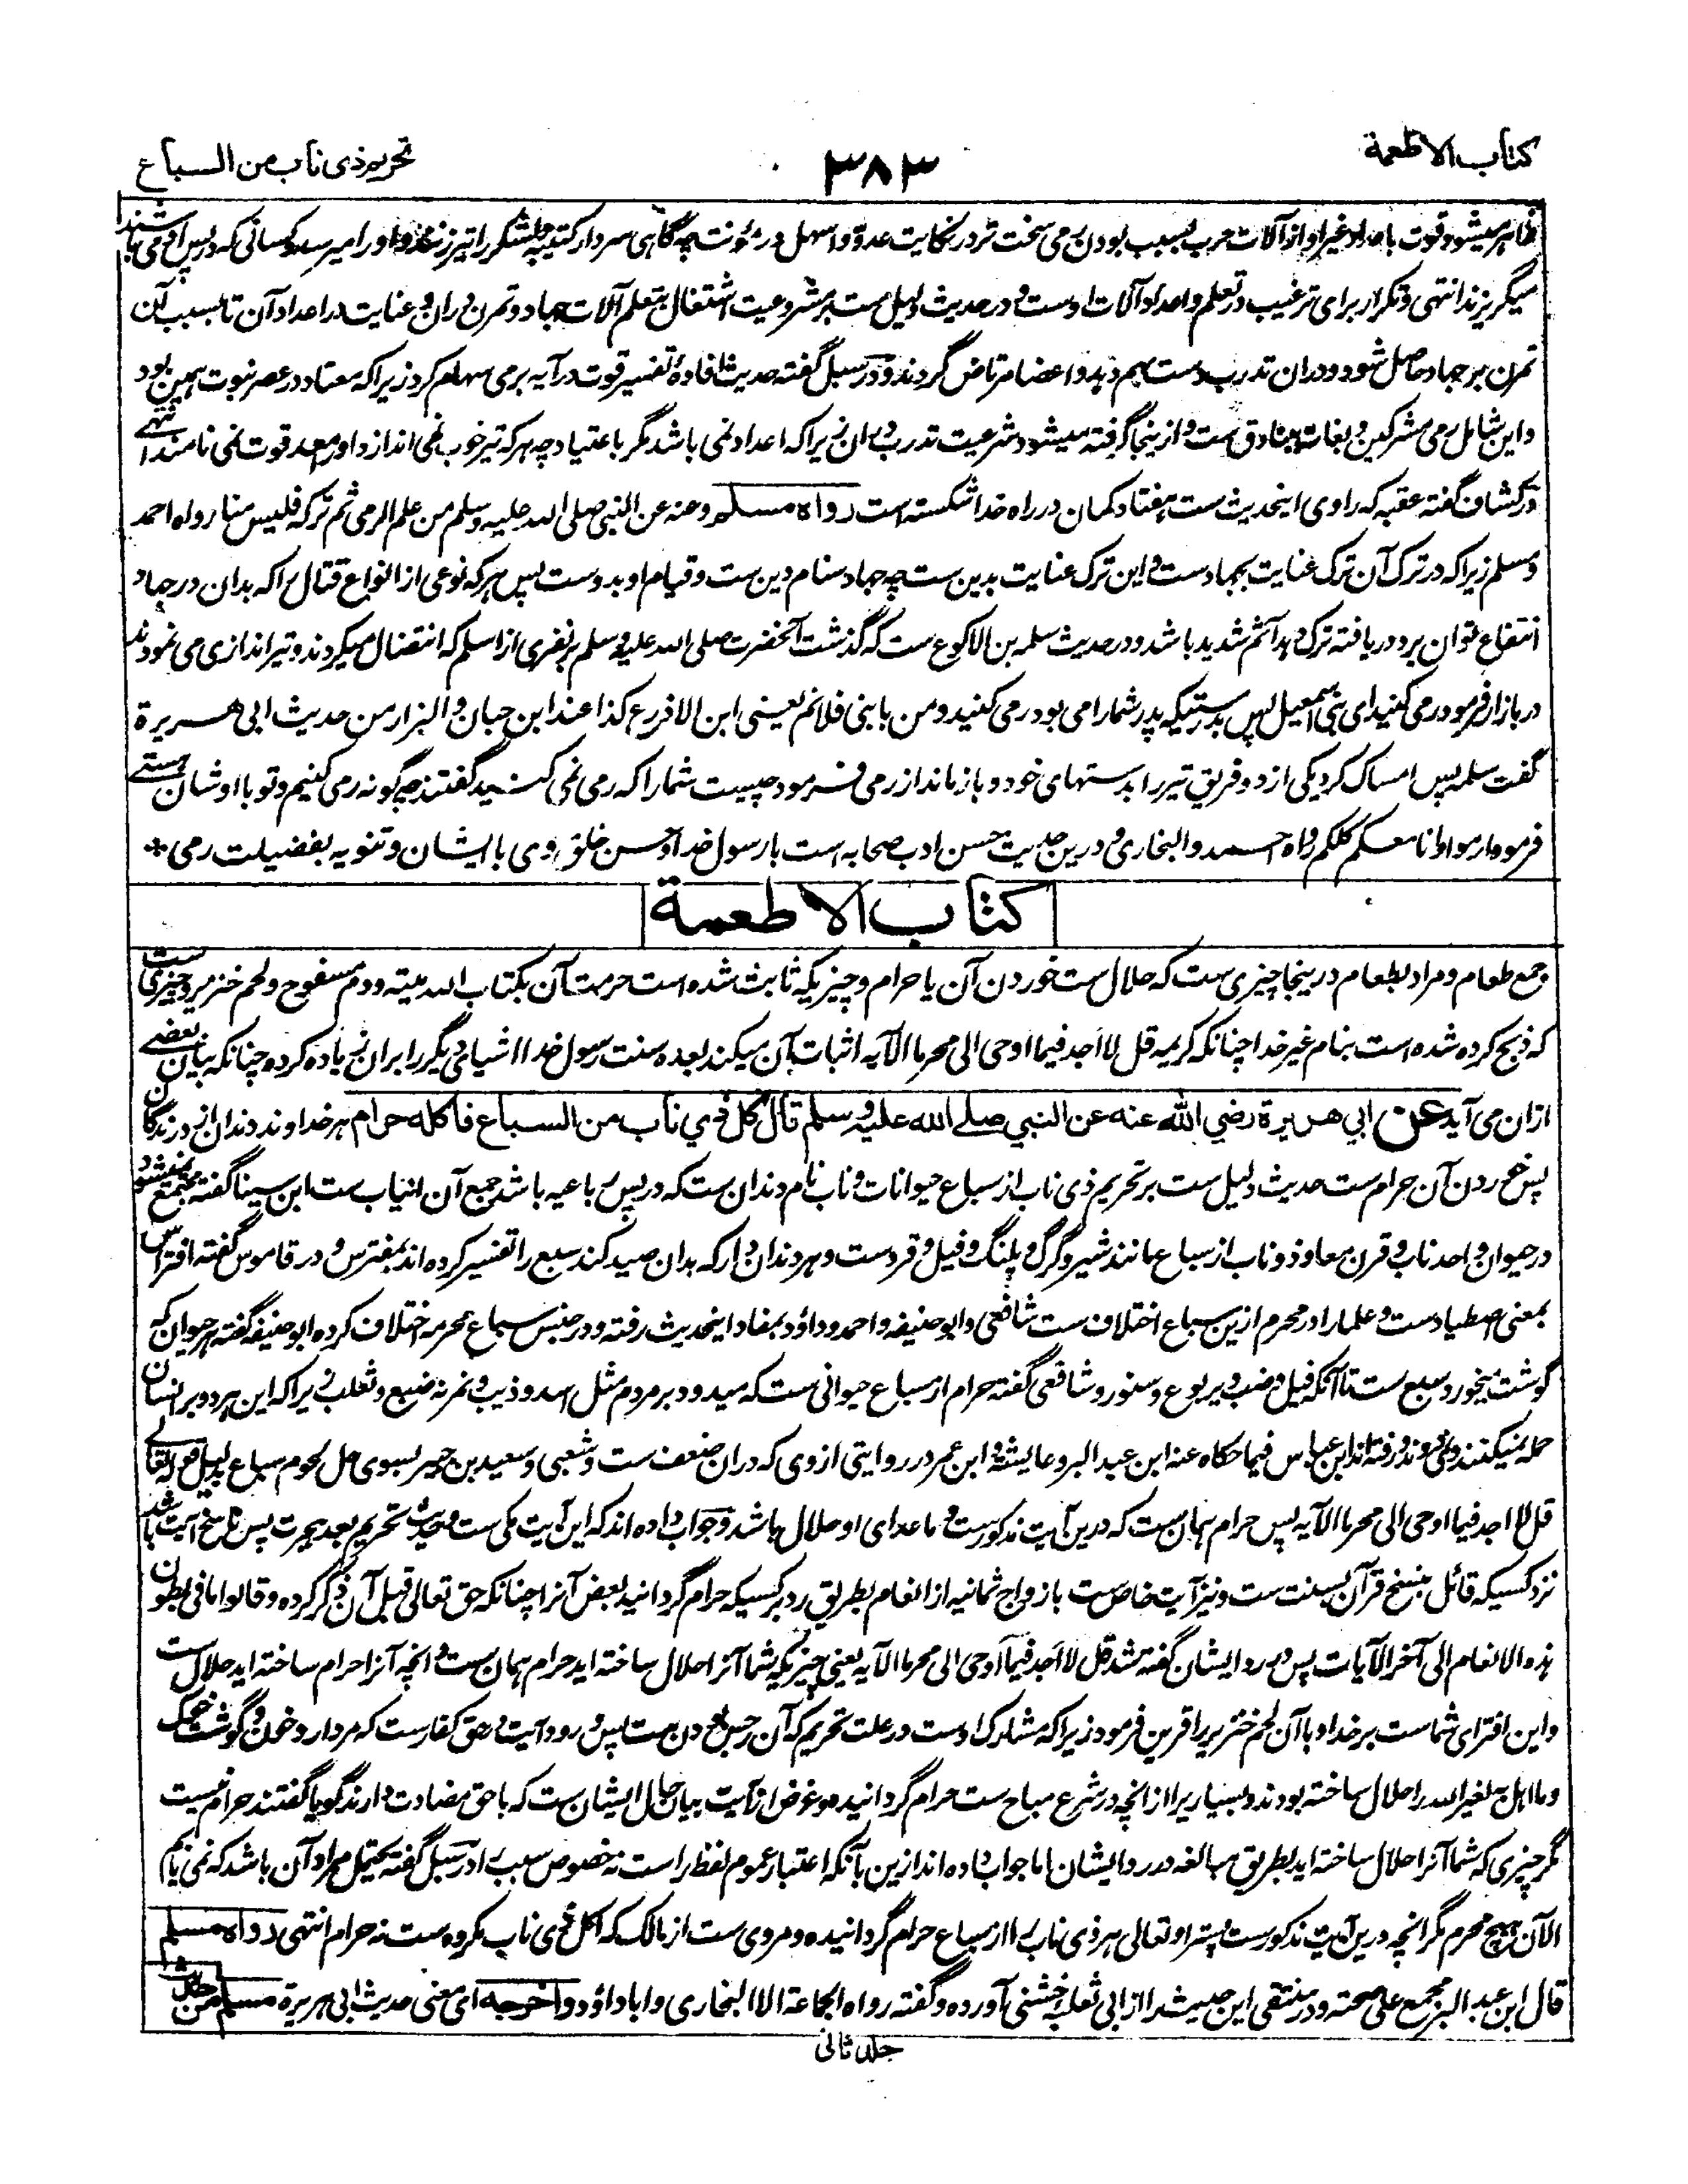 کتاب الاطعمة
۳۸۳
تحریم ذی ناب من السباع
ظاهر میشود قوت باعداد غیر او از آلات حرب بسبب بودن رمی سخت تر در نکایت عدو و اسهل در مؤنت چه گاهی سردار کتیبه لشکر را تیر زنند و او را میرسد و کسانی که در پس او می باشند
میگریزند انتهی و تکرار برای ترغیب در تعلم و اعداد آلات اوست و در حدیث دلیل ست بر مشروعیت اشتغال بتعلم آلات جهاد و تمرن در ان و عنایت در اعداد آن تا بسبب آن
تمرن بر جهاد حاصل شود و دران تدرب دست بهم دهد و اعضا مرتاض گردند و در سبل گفته حدیث افادهٔ تفسیر قوت در آیه برمی سهام کرد زیراکه معتاد در عصر نبوت همین بود
و این شامل رمی مشرکین و بغات به بنادق ست و از ینجا گرفته میشود شرعیت تدرب دران زیراکه اعداد نمی باشد مگر باعتیاد چه هر که تیر خوب نمی اندازد او را معد قوت نمی نامند انتهی
در کشاف گفته عقبه که راوی اینحدیث ست هفتاد کمان در راه خدا شکسته است رواه مسلم وعنه عن النبی صلی الله علیه وسلم من علم الرمی ثم ترکه فلیس منا رواه احمد
و مسلم زیراکه در ترک آن ترک عنایت بجهاد ست و این ترک عنایت بدین ست چه جهاد سنام دین ست و قیام او بدوست پس هر که نوعی از انواع قتال را که بدان در جهاد
انتفاع توان برد دریافته ترک دهد آثم شدید باشد و در حدیث سلمه بن الاکوع ست که گذشت آنحضرت صلی الله علیه وسلم بر نفری از اسلم که انتضال میکردند و تیراندازی می نمودند
در بازار فرمود رمی کنید ای بنی اسمعیل پس بدرستیکه پدر شما رامی بود رمی کنید و من با بنی فلانم یعنی ابن الادرع کذا عند ابن حبان و البزار من حدیث ابی هریرة
گفت سلمه پس امساک کرد یکی از دو فریق تیر را بدستهای خود و باز ماند از رمی فرمود چیست شما را که رمی نمی کنید گفتند چگونه رمی کنیم و تو با اوشان هستی
فرمود ارموا وانا معکم کلکم رواه احمد والبخاری و درین حدیث حسن ادب صحابه است با رسول خدا و حسن خلق وی با ایشان و تنویه بفضیلت رمی *
کتاب الاطعمة
جمع طعام و مراد بطعام درینجا چیزی ست که حلال ست خوردن آن یا حرام و چیزیکه ثابت شده است حرمت آن بکتاب الله میته و دم مسفوح و لحم خنزیر و چیزی ست
که ذبح کرده شده است بنام غیر خدا چنانکه کریمه قل لا اجد فیما اوحی الی محرما الآیه اثبات آن میکند بعده سنت رسول خدا اشیای دیگر را بران زیاده کرده چنانکه بیان بعضی
ازان می آید عن ابی هریرة رضی الله عنه عن النبی صلی الله علیه وسلم قال کل ذی ناب من السباع فاکله حرام هر خداوند دندان از درندگان
پس خوردن آن حرام ست حدیث دلیل ست بر تحریم ذی ناب از سباع حیوانات و ناب نام دندان ست که در پس رباعیه باشد جمع آن انیاب ست ابن سینا گفته مجتمع نمیشود
در حیوان واحد ناب و قرن معا و ذو ناب از سباع مانند شیر و گرگ و پلنگ و فیل و قرد ست و هر دندان دار که بدان صید کند سبع را تفسیر کرده اند بمفترس و در قاموس گفته افتراس
بمعنی اصطیاد ست و علما را در محرم ازین سباع اختلاف ست شافعی و ابو حنیفه و احمد و داؤد بمفاد اینحدیث رفته و در جنس سباع محرمه اختلاف کرده ابو حنیفه گفته هر حیوان که
گوشت میخورد سبع ست تا آنکه فیل و ضب و یربوع و سنور و شافعی گفته حرام از سباع حیوانی ست که میدود بر مردم مثل اسد و ذیب و نمر نه ضبع و ثعلب زیراکه این هر دو بر انسان
حمله نمیکنند و نمی دوند و رفته اند ابن عباس فیما حکاه عنه ابن عبد البر و عایشه و ابن عمر در روایتی از وی که دران ضعف ست و شعبی و سعید بن جبیر بسوی حل لحوم سباع بدلیل قوله تعالی
قل لا اجد فیما اوحی الی محرما الآیه پس حرام همان ست که درین آیت مذکور ست و ماعدای او حلال باشد و جواب داده اند که این آیت مکی ست و حدیث تحریم بعد هجرت پس ناسخ آیت باشد
نزد کسیکه قائل بنسخ قرآن بسنت ست و نیز آیت خاص ست بازواج ثمانیه از انعام بطریق رد بر کسیکه حرام گردانید بعض آنرا چنانکه حق تعالی قبل آن ذکر کرده و قالوا ما فی بطون
هذه الانعام الی آخر الآیات پس در رد ایشان گفته شد قل لا اجد فیما اوحی الی محرما الآیه یعنی چیزیکه شما آنرا حلال ساخته اید حرام همان ست و آنچه آنرا حرام ساخته اید حلال ست
و این افترای شماست بر خدا و با آن لحم خنزیر را قرین فرمود زیراکه مشارک اوست در علت تحریم که آن رجس بودن ست پس ورود آیت در حق کفار ست که مردار و خون و گوشت خوک
و ما اهل به لغیر الله را حلال ساخته بودند و بسیاری را از آنچه در شرع مباح ست حرام گردانیده و غرض از آیت بیان حال ایشان ست که با حق مضادت دارند گویا گفتند حرام نیست
مگر چیزی که شما آنرا حلال ساخته اید بطریق مبالغه در رد ایشان اما جواب داده اند ازین بآنکه اعتبار عموم لفظ راست نه خصوص سبب را در سبل گفته یحتمل مراد آن باشد که نمی یابم
الآن هیچ محرم مگر آنچه درین آیت مذکور ست پستر او تعالی هر ذی ناب را از سباع حرام گردانیده و مروی ست از مالک که اکل ذی ناب مکروه ست نه حرام انتهی رواه مسلم
قال ابن عبد البر مجمع علی صحته و در منتقی این حدیث را از ابی ثعلبه خشنی آورده و گفته رواه الجماعة الا البخاری و ابا داؤد واخرجه ای معنی حدیث ابی هریرة مسلم من حدیث
جلد ثانی